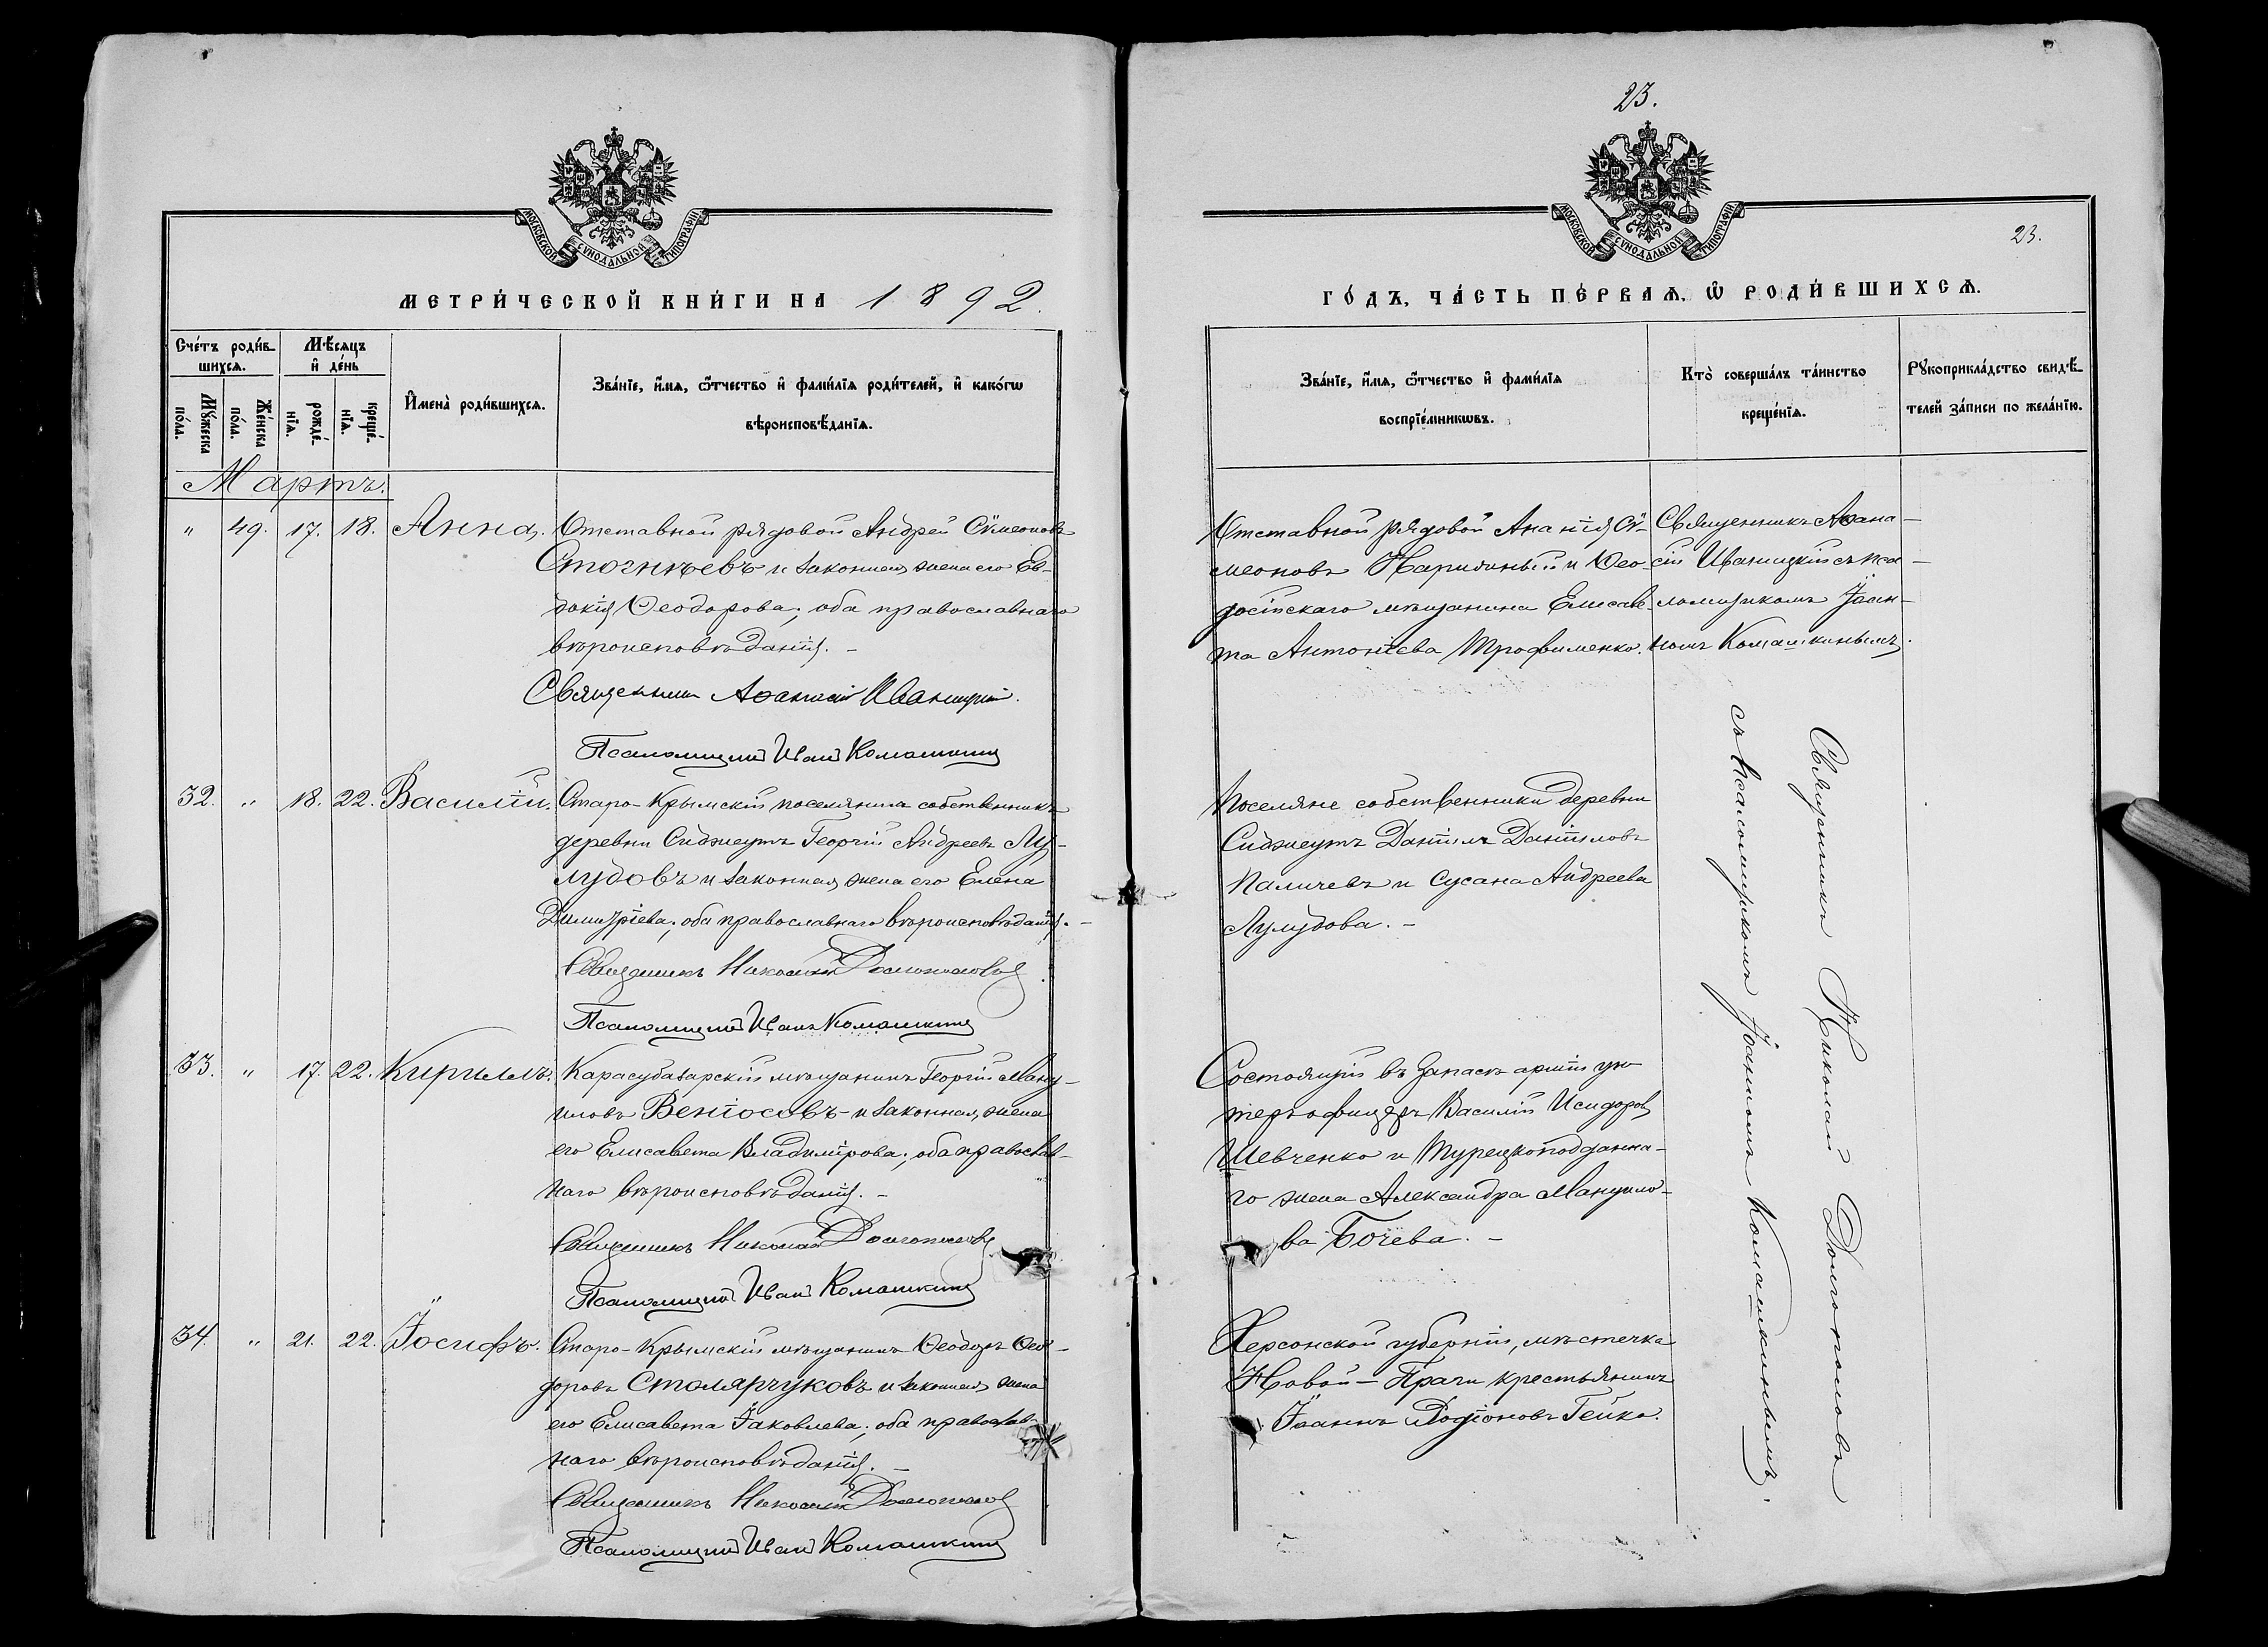 23.
МОСКОВСКОЙ СѴНОДАЛЬНОЙ ТИПОГРАФІИ
МЕТРИ́ЧЕСКОЙ КНИ́ГИ НА 1892.
Сче́тъ роди́вшихся.
Му́жеска по́ла.
Же́нска по́ла.
Мѣ́сяцъ и҆ де́нь
рожде́нїя.
креще́нїя.
И҆мена̀ роди́вшихся.
Зва́нїе, и҆́мя, ѻ҆́тчество и҆ фами́лїя роди́телей, и҆ како́гѡ
вѣроисповѣ́данїя.
Мартъ.
" 49. 17. 18. Анна. Отставной рядовой Андрей Сѵмеоновъ
Стогнѣевъ и законная жена его Ев-
докія Ѳеодорова; оба православнаго
вѣроисповѣданія. –
Священникъ Аѳанасій Иваницкій.
Псаломщикъ Иванъ Комашкинъ
32. " 18. 22. Василій. Старо-Крымскій поселянинъ собственникъ
деревни Сиджеутъ Георгій Андреевъ Лу-
лудовъ и законная жена его Елена
Димитріева; оба православнаго вѣроисповѣданія. –
Священникъ Николай Долгополовъ
Псаломщикъ Иванъ Комашкинъ
33. " 17. 22. Кириллъ. Карасубазарскій мѣщанинъ ГеоргійМану-
иловъ Веніосовъ и законная жена
его Елисавета Владимірова; оба православ-
наго вѣроисповѣданія. –
Священникъ Николай Долгополовъ
Псаломщикъ Иванъ Комашкинъ
34. " 21. 22. Іосифъ. Старо-Крымскій мѣщанинъ Ѳеодоръ Ѳео-
доровъ Столярчуковъ и законная жена
его Елисавета Іаковлева; оба православ-
наго вѣроисповѣданія. –
Священникъ Николай Долгополовъ
Псаломщикъ Иванъ Комашкинъ
МОСКОВСКОЙ СѴНОДАЛЬНОЙ ТИПОГРАФІИ
23.
ГО́ДЪ, ЧА́СТЬ ПЕ́РВАЯ, Ѡ҆ РОДИ́ВШИХСЯ.
Зва́нїе, и҆́мя, ѻ҆́тчество и҆ фами́лїя
воспрїе́мникѡвъ.
Кто̀ соверша́лъ та́инство
креще́нїя.
Рꙋкоприкла́дство свидѣ́-
телей за́писи по жела́нїю.
Отставной рядовой Ананія Сѵ-
меоновъ Нарижный и Ѳео-
досійскаго мѣщанина Елисаве-
та Антоніева Трофименко.
Священникъ Аѳана-
сій Иваницкій съ пса-
ломщикомъ Іоан-
номъ Комашкинымъ.
Поселяне собственники деревни
Сиджеутъ Даніилъ Даніиловъ
Паличевъ и Сусана Андреева
Лулудова. –
Состоящій въ запасѣ арміи ун-
теръ-офицеръ Василій Исидоровъ
Шевченко и Турецкоподданна-
го жена Александра Мануило-
ва Бочева. –
Херсонской губерніи, мѣстечка
Новой-Праги крестьянинъ
Іоаннъ Родіоновъ Гейко.
Священникъ Николай Долгополовъ
съ псаломщикомъ Іоанномъ Комашкинымъ.